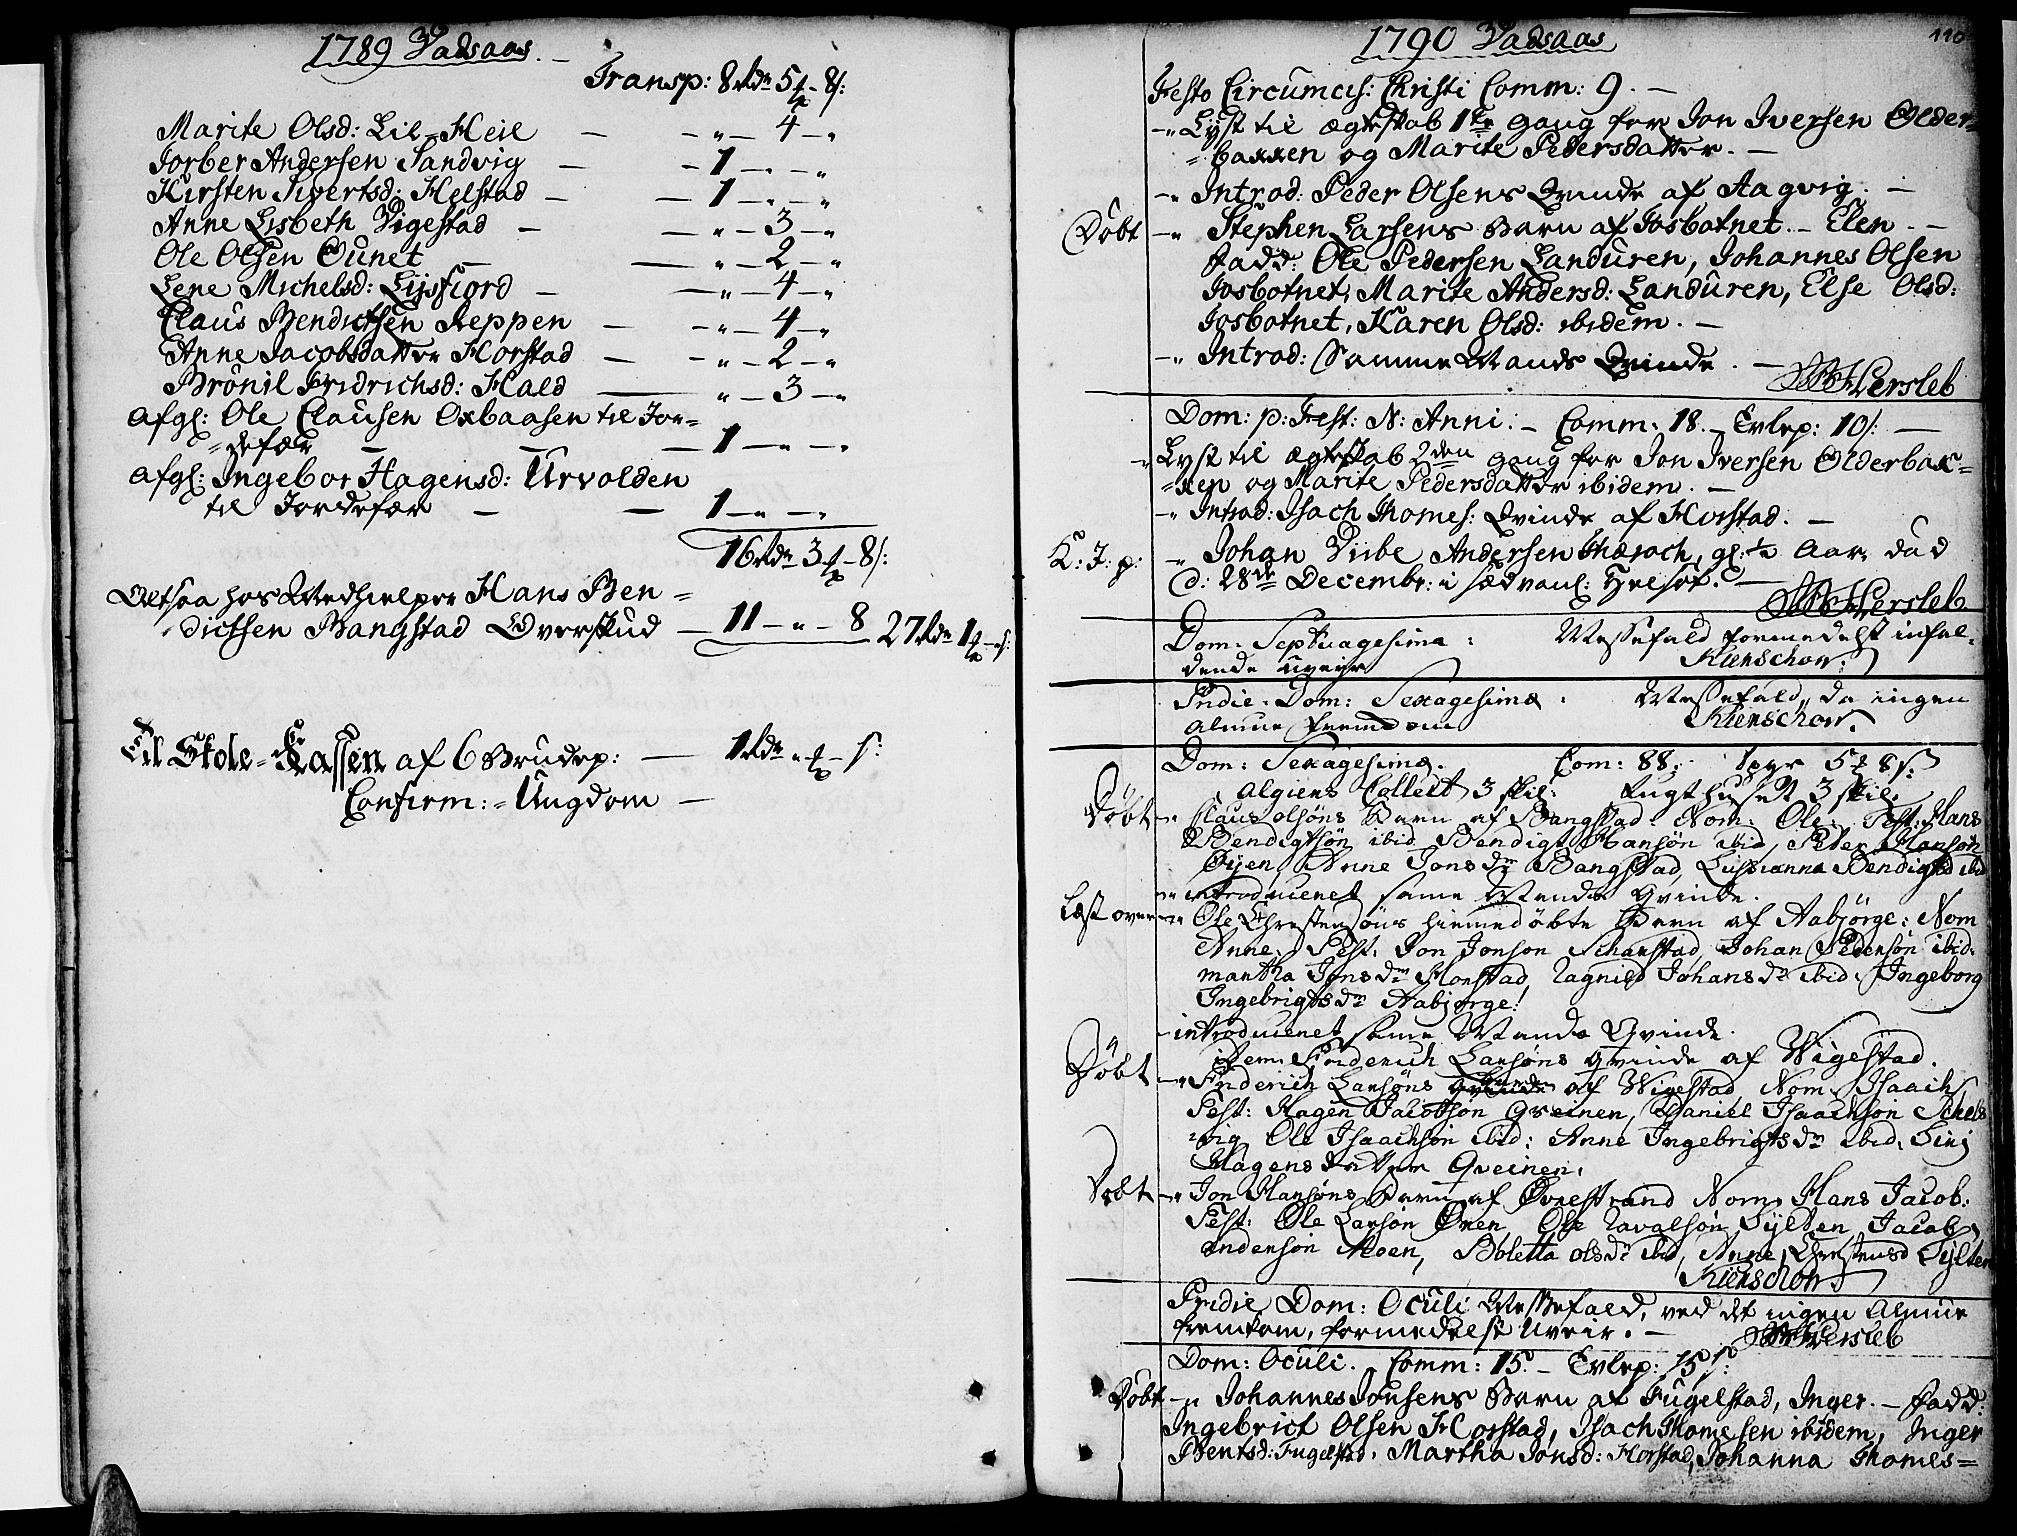 1789 Vadsaas.
Transp: 8 Rdr 5 - 8/:
Marite Olsd: Lil-Heil — - „ - 4 - „
Jorber Andersen Sandvig — - 1 - „ - „
Kirsten Sivertsd: Helstad — — 1 - „ - „
Anne Lisbeth Vigestad — — „ - 3 - „
Ole Olsen Ounet — — „ - 2 - „
Lene Michelsd: Lijsfiord — — „ - 4 - „
Claus Bendictsen Reppen — - „ - 4 - „
Anne Jacobsdatter Horstad — - „ - 2 - „
Brönil Fridrichsd: Hald — „ - 3 - „
Afgl: Ole Clausen Oxbaasen til Jor=
=defær — — — 1 - „ - „
Afgl: Ingebor Hagensd: Urvolden
til Jordefær — — 1 - „ - „
16 Rdr 3 - 8/:
Altsaa hos Medhielper Hans Ben=
=dictsen Bangstad Overskud — 11 - „ - 8 27 Rdr 1 - „ s:
Til Skole=Cassen af 6 Brudep: — 1 Rdr „ - s:
Confirm:=Ungdom —
1790 Vadsaas
110
Festo Circumcis: Christi Comm: 9. —
-„ Lyst til ægteskab 1ste gang for Jon Iversen Older=
=bakken og Marite Pedersdatter. —
-„ Introd: Peder Olsens Qvinde af Aagvig. —
Döbt -„ Stephen Larsens Barn af Josbotnet. - Elen. -
Fadd: Ole Pedersen Landuren, Johannes Olsen
Josbotnet, Marite Andersd: Landuren, Else Olsd:
Josbotnet, Karen Olsd: ibidem. —
-„ Introd: Samme Mands Qvinde. —
Hersleb
Dom: p: Fest: N: Anni. - Comm: 18. - Evlep: 10/: —
-„ Lyst til ægteskab 2den gang for Jon Iversen Olderbak=
=ken og Marite Pedersdatter ibidem. —
-„ Introd: Isach Thomes: Qvinde af Horstad. —
K: J: p: -„ Johan Viibe Andersen Hæroch, gl: ½ Aar, död
d: 28de Decembr: i sædvanl: Helsot. —
Hersleb
Dom: Septuagesima: Messefald formedelst infal=
dende uveir Kienschow.
Pridie Dom: Sexagesimæ: Messefald, da ingen
Almue fremkom Kienschow.
Dom: Sexagesimæ. Com: 88. 5 8 s:
Algiens Collect 3 skil: Tugthuset 3 skil:
Döbt -„ Claus Olsöns Barn af Bangstad. Nom: Ole. Test: Hans
Bendigtsön ibid, Bendigt Hansön ibid, Peder Hansön
Öyen, Anne Jonsdr Bangstad, Lusianna Bendigtsd ibid
-„ introduceret same Mands Qvinde.
Læst over -„ Ole Christensöns hiemmedöbte Barn af Aabjörge: Nom
Anne, Test: Jon Jonson Scharstad, Johan Pedersön ibid:
Martha Jonsdr Horstad, Ragnild Johansdr ibid, Ingeborg
Ingebrigtsdr Aabjörge.
- introduceret same Mands Qvinde.
item Friderich Larsöns Qvinde af Wigestad.
Döbt -„ Friderich Larsöns af Wigestad, Nom, Isaach
Test: Hagen Jacobsön Greinen, Daniel Isaachsön Schels
=vig, Ole Isaachsön ibid: Anne Ingebrigtsdr ibid, Siri
Hagensdatter Qveinen.
Döbt -„ Jon Hansöns Barn af Övrestrand Nom, Hans Jacob:
Test: Ole Larsön Ören, Ole Tavalsön Sylten, Jacob
Andersön Moen, Boletta Olsdr ibid, Anne Christensd Sylten
Kienschow
Pridie Dom: Oculi Messefald, ved det ingen Almue
fremkom, formedelst uveir. —
Hersleb
Dom: Oculi. Comm: 15. - Evlep: 15/:
Döbt -„ Johannes Jonsens Barn af Fugelstad, Inger. - Fadd:
Ingebrict Olsen Horstad, Isach Thomesen ibidem, Inger
Bentsd: Fugelstad, Martha Jonsd: Horstad, Johanna Thomes=